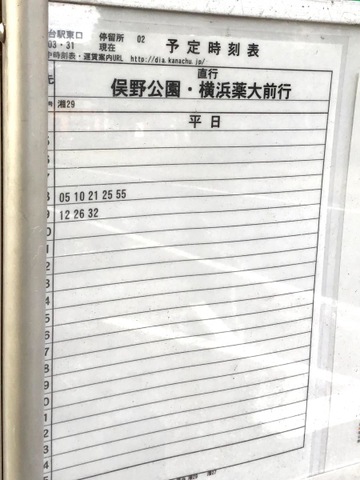 台駅東口 停留所 02 予定時刻表
03・31 現在
時刻表・運賃案内URL http://dia.kanachu.jp/
先 直行
俣野公園・横浜薬大前行
湘29
平日
5
6
7
8 05 10 21 25 55
9 12 26 32
0
1
2
3
4
5
6
7
8
9
0
1
2
3
4